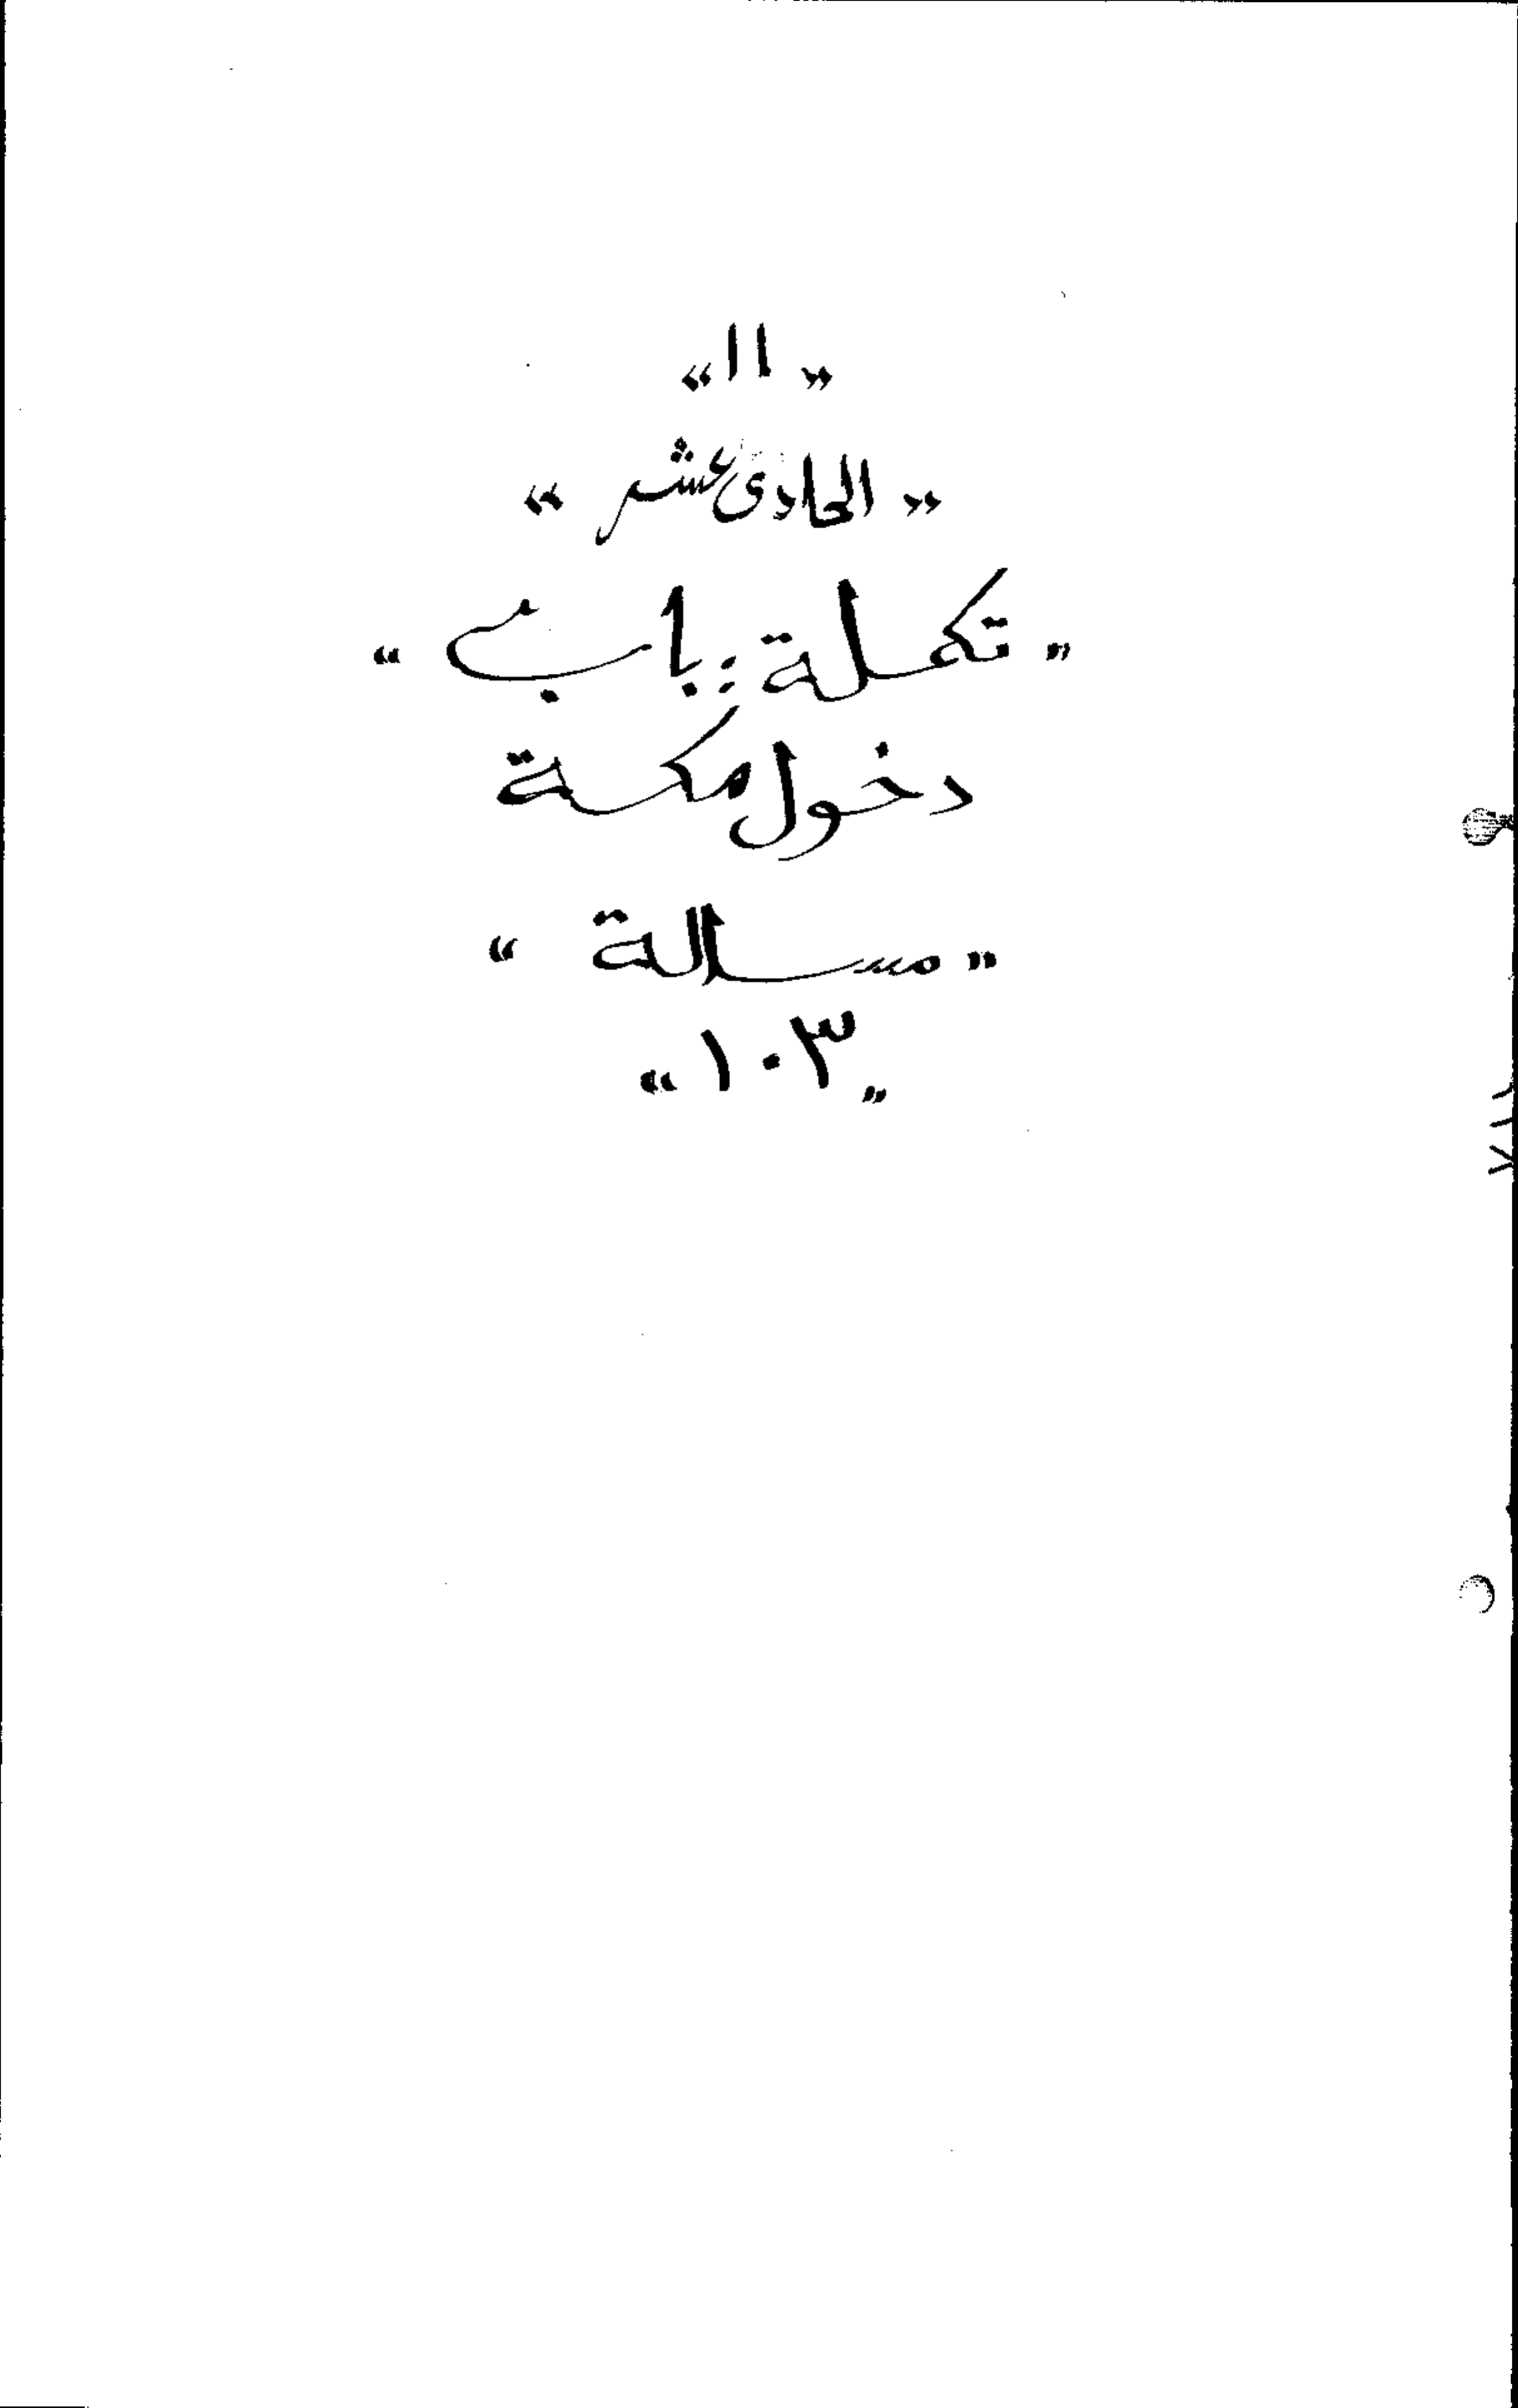 « ١١ »
« الحادى عشر »
« تكملة : باب »
دخول مكة
« مسالة »
« ١٠٣ »